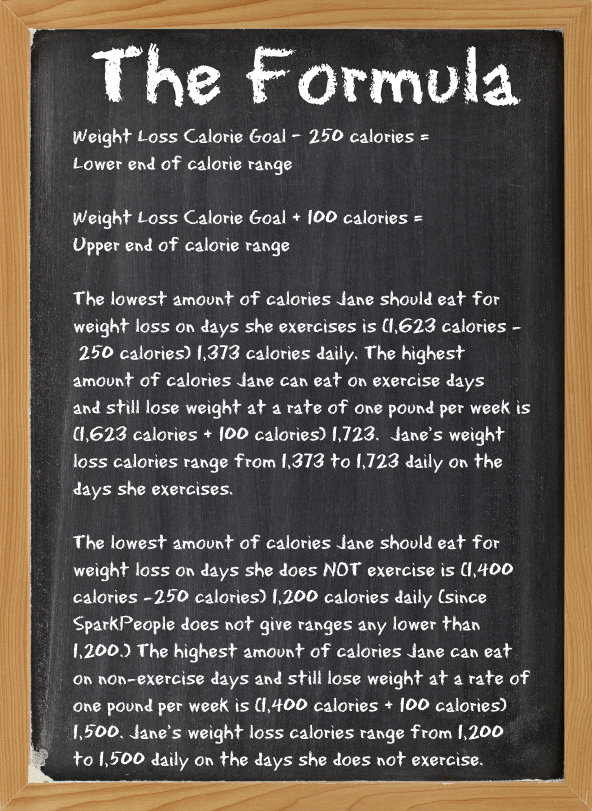 The Formula
Weight Loss Calorie Goal - 250 calories =
Lower end of calorie range
Weight Loss Calorie Goal + 100 calories =
Upper end of calorie range
The lowest amount of calories Jane should eat for
weight loss on days she exercises is (1,623 calories -
250 calories) 1,373 calories daily. The highest
amount of calories Jane can eat on exercise days
and still lose weight at a rate of one pound per week is
(1,623 calories + 100 calories) 1,723. Jane's weight
loss calories range from 1,373 to 1,723 daily on the
days she exercises.
The lowest amount of calories Jane should eat for
weight loss on days she does NOT exercise is (1,400
calories -250 calories) 1,200 calories daily (since
SparkPeople does not give ranges any lower than
1,200.) The highest amount of calories Jane can eat
on non-exercise days and still lose weight at a rate of
one pound per week is (1,400 calories + 100 calories)
1,500. Jane's weight loss calories range from 1,200
to 1,500 daily on the days she does not exercise.